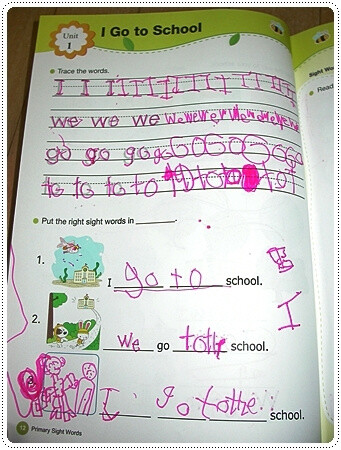 Unit 1
I Go to School
Trace the words.
I I I I I I I I I I I I
we we we we we we we we we we
go go go go G O G O S G G O
to to to to to to to to t o t
Sight Wor
Put the right sight words in ______.
Read
1.
I go to school.
2.
we go tothe school.
I
3
I go tothe school.
12 Primary Sight Words